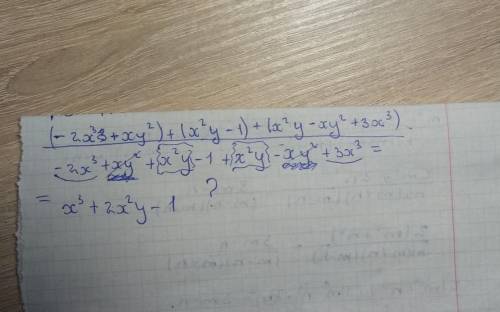 (-2x³3+xy²)+(x²y-1)+(x²y-xy²+3x³)
-2x³+xy²+{x²y}-1+{x²y}-xy²+3x³=
= x³+2x²y-1 ?